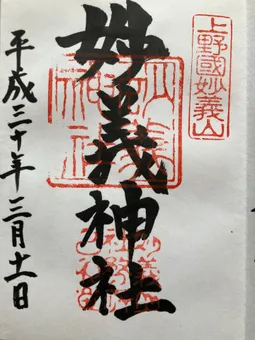 上野國妙義山
妙義神社
平成三十年三月十一日